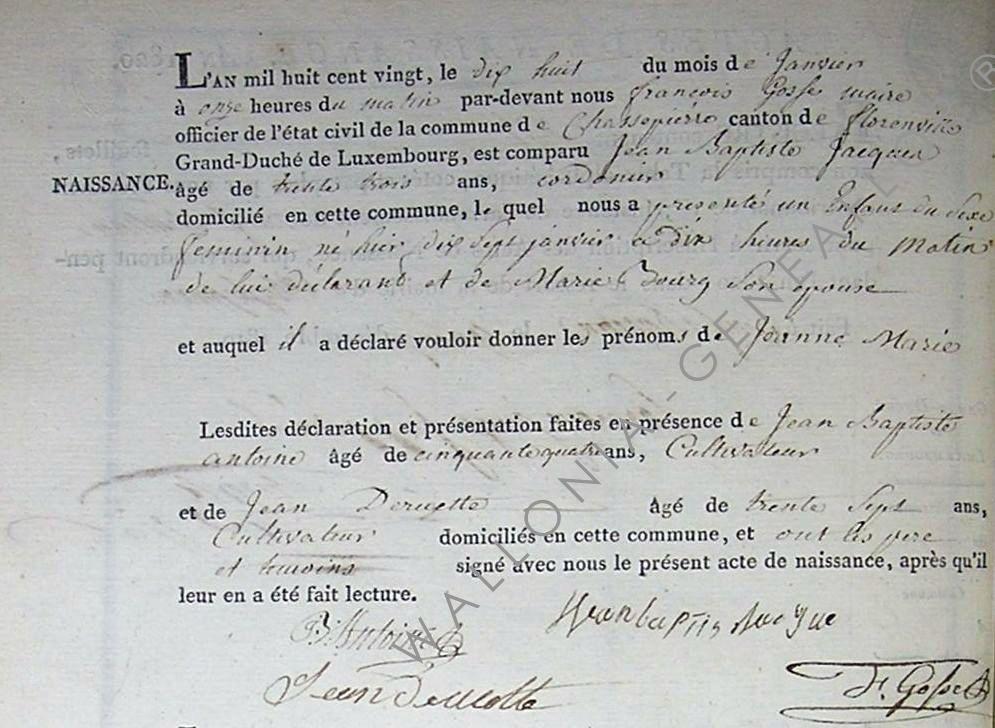 L'AN mil huit cent vingt, le dix huit du mois de Janvier
à onze heures du matin par-devant nous françois Gosse maire
officier de l'état civil de la commune de Chassepierre canton de florenville
Grand-Duché de Luxembourg, est comparu Jean Baptiste Jacques
NAISSANCE. âgé de trente trois ans, cordonier
domicilié en cette commune, le quel nous a présenté un Enfant du Sexe
feminin né hier dix Sept janvier a dix heures du matin
de lui déclarant et de Marie Bourg Son epouse
et auquel il a déclaré vouloir donner les prénoms de Jeanne Marie
Lesdites déclaration et présentation faites en présence de Jean Baptiste
antoine âgé de cinquante quatre ans, Cultivateur
et de Jean Deruette âgé de trente Sept ans,
Cultivateur domiciliés en cette commune, et ont les pere
et temoins signé avec nous le présent acte de naissance, après qu'il
leur en a été fait lecture.
B: Antoine Jean baptis Jacque
Jean F: Gosse
WALLONIA-GENEAL
®